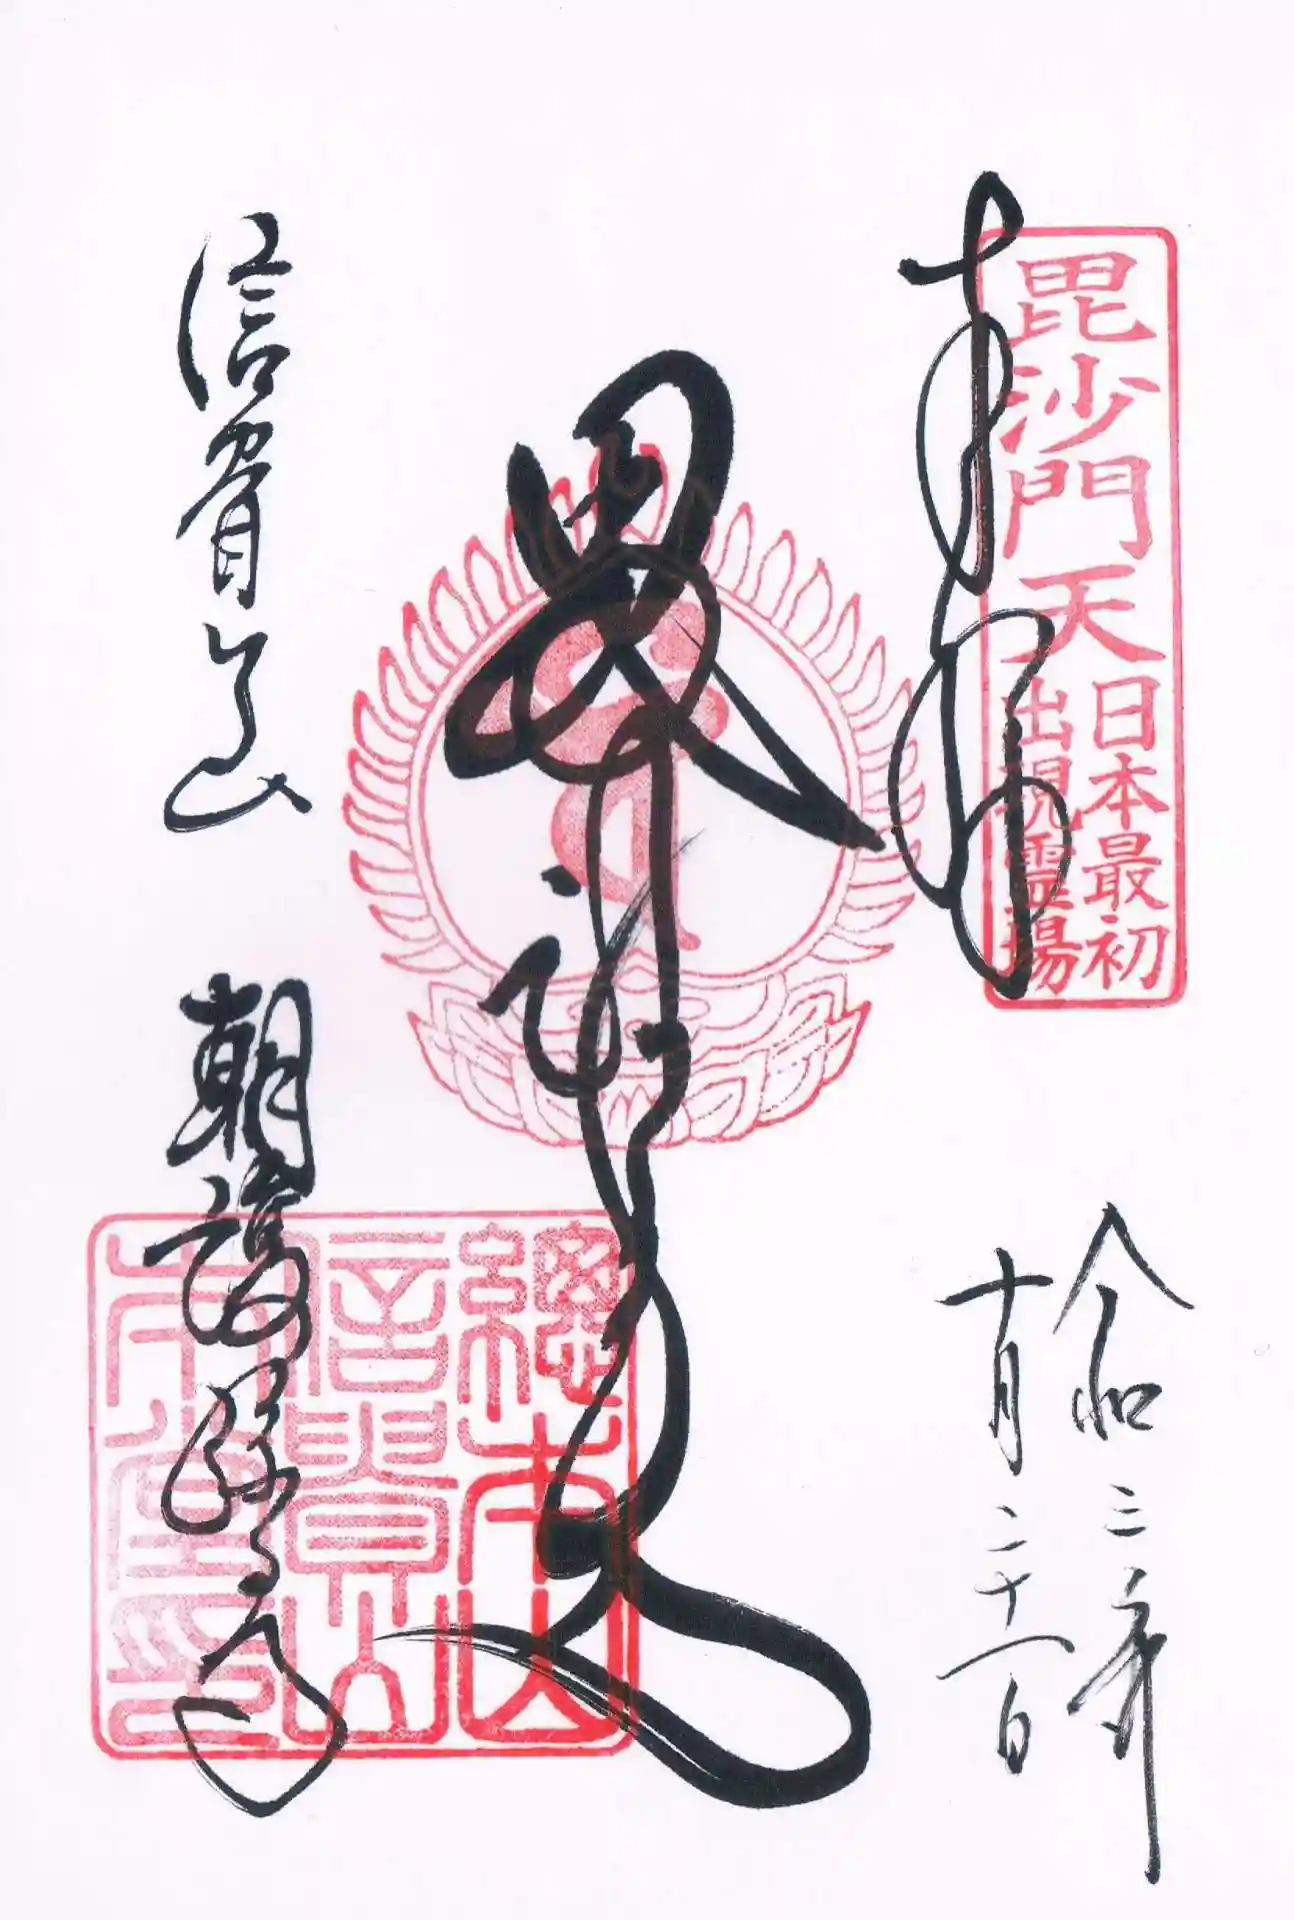 奉拝
毘沙門天
日本最初
出現霊場
令和三年
十月二十一日
毘沙門天
信貴山
朝護孫子寺
總本山
信貴山
本堂印